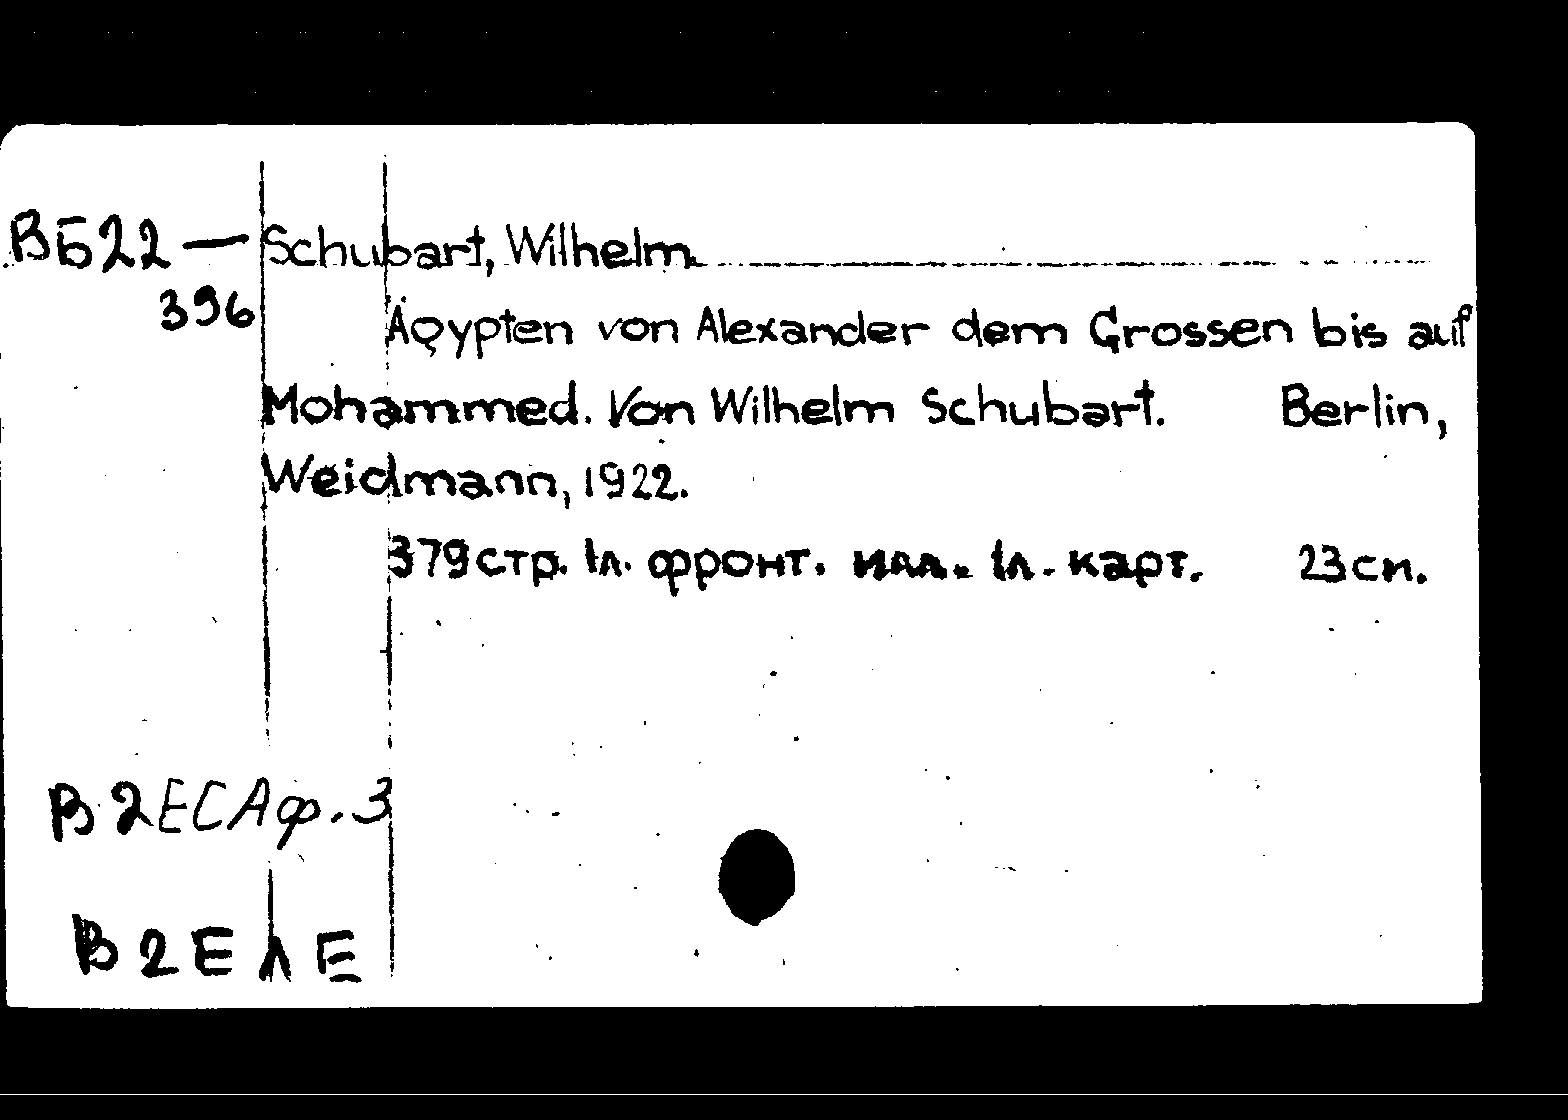 ВБ22 — Schubart, Wilhelm.
396
Ägypten von Alexander dem Grossen bis auf
Mohammed. Von Wilhelm Schubart. Berlin,
Weidmann, 1922.
379 стр. 1л. фронт. илл. 1л. карт. 23 см.
В 2ЕСАф.3
В 2ЕЛЕ